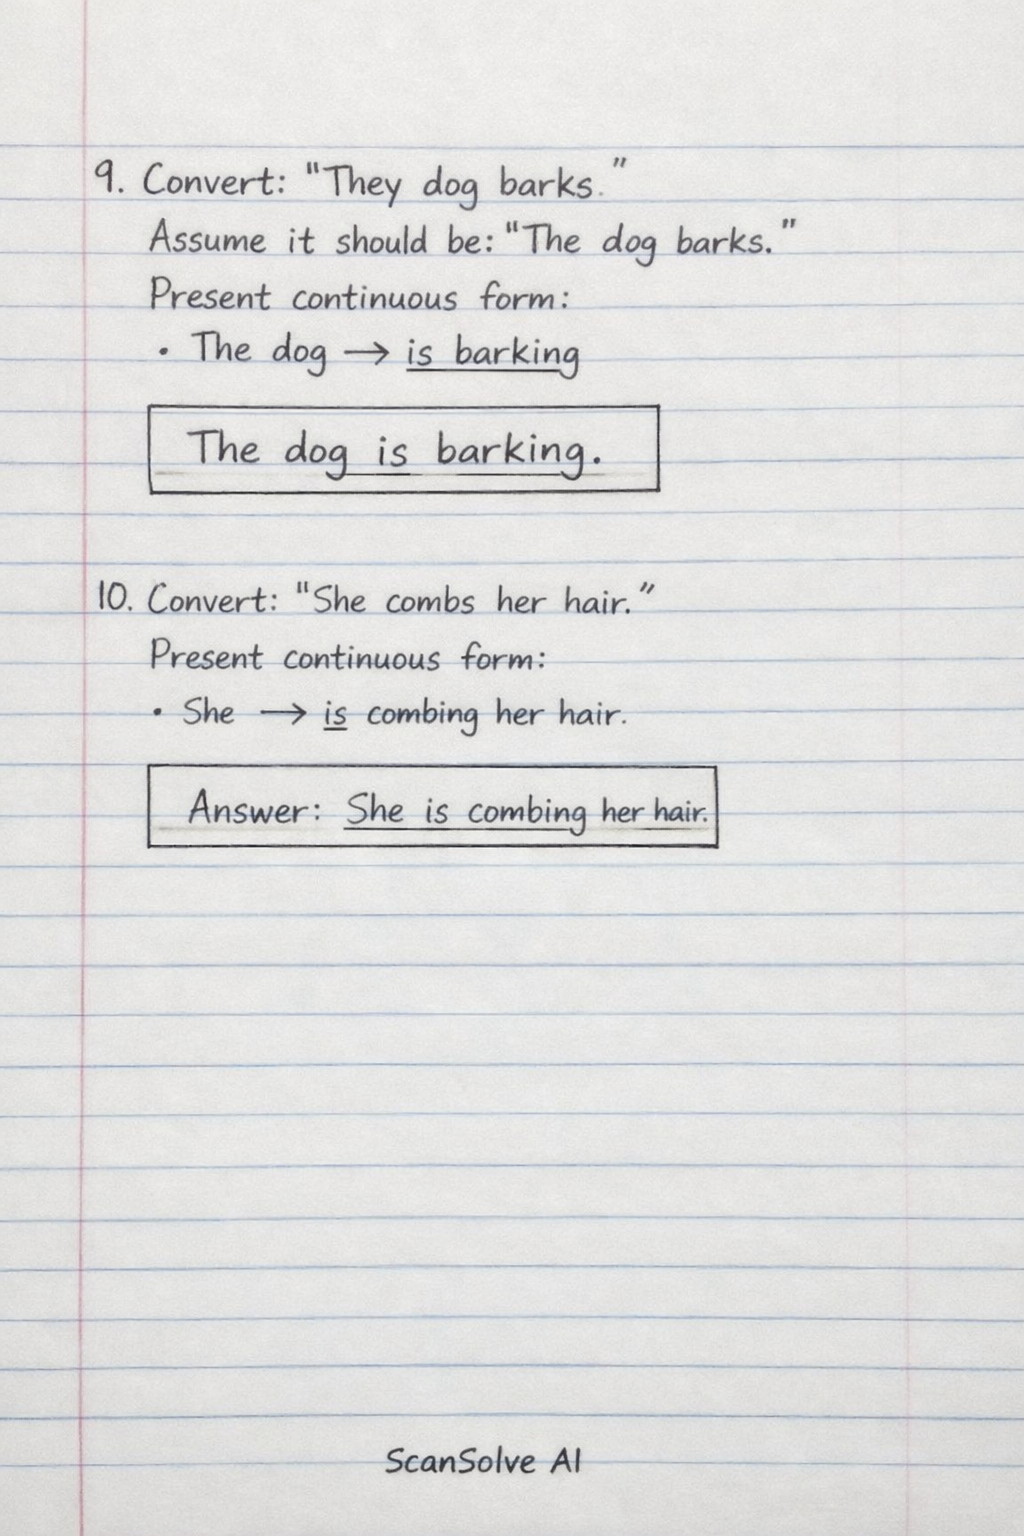 9. Convert: "They dog barks."
Assume it should be: "The dog barks."
Present continuous form:
• The dog → is barking
The dog is barking.
10. Convert: "She combs her hair."
Present continuous form:
• She → is combing her hair.
Answer: She is combing her hair.
ScanSolve AI